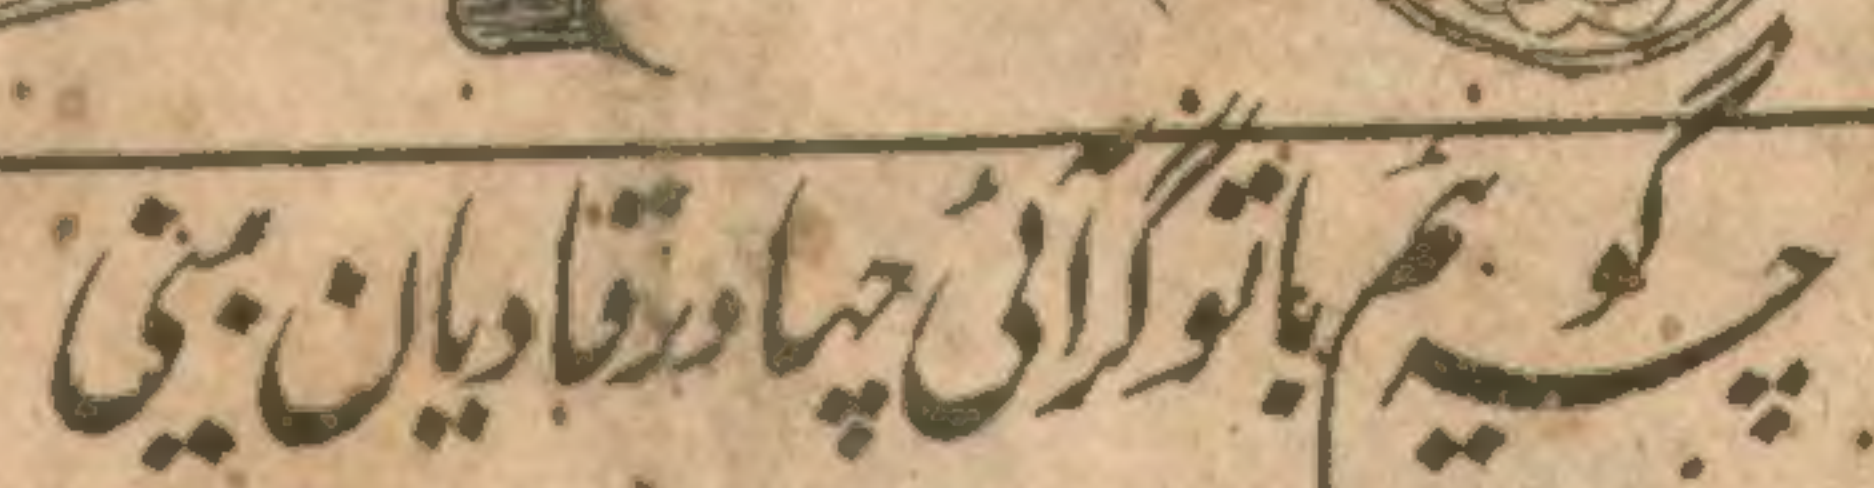 چہ گویم با تو گر آئی چہا در قادیان بینی